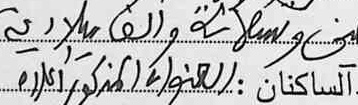 وستمائة وألف ميلادية
الساكنان : العنوان المذكور أعلاه